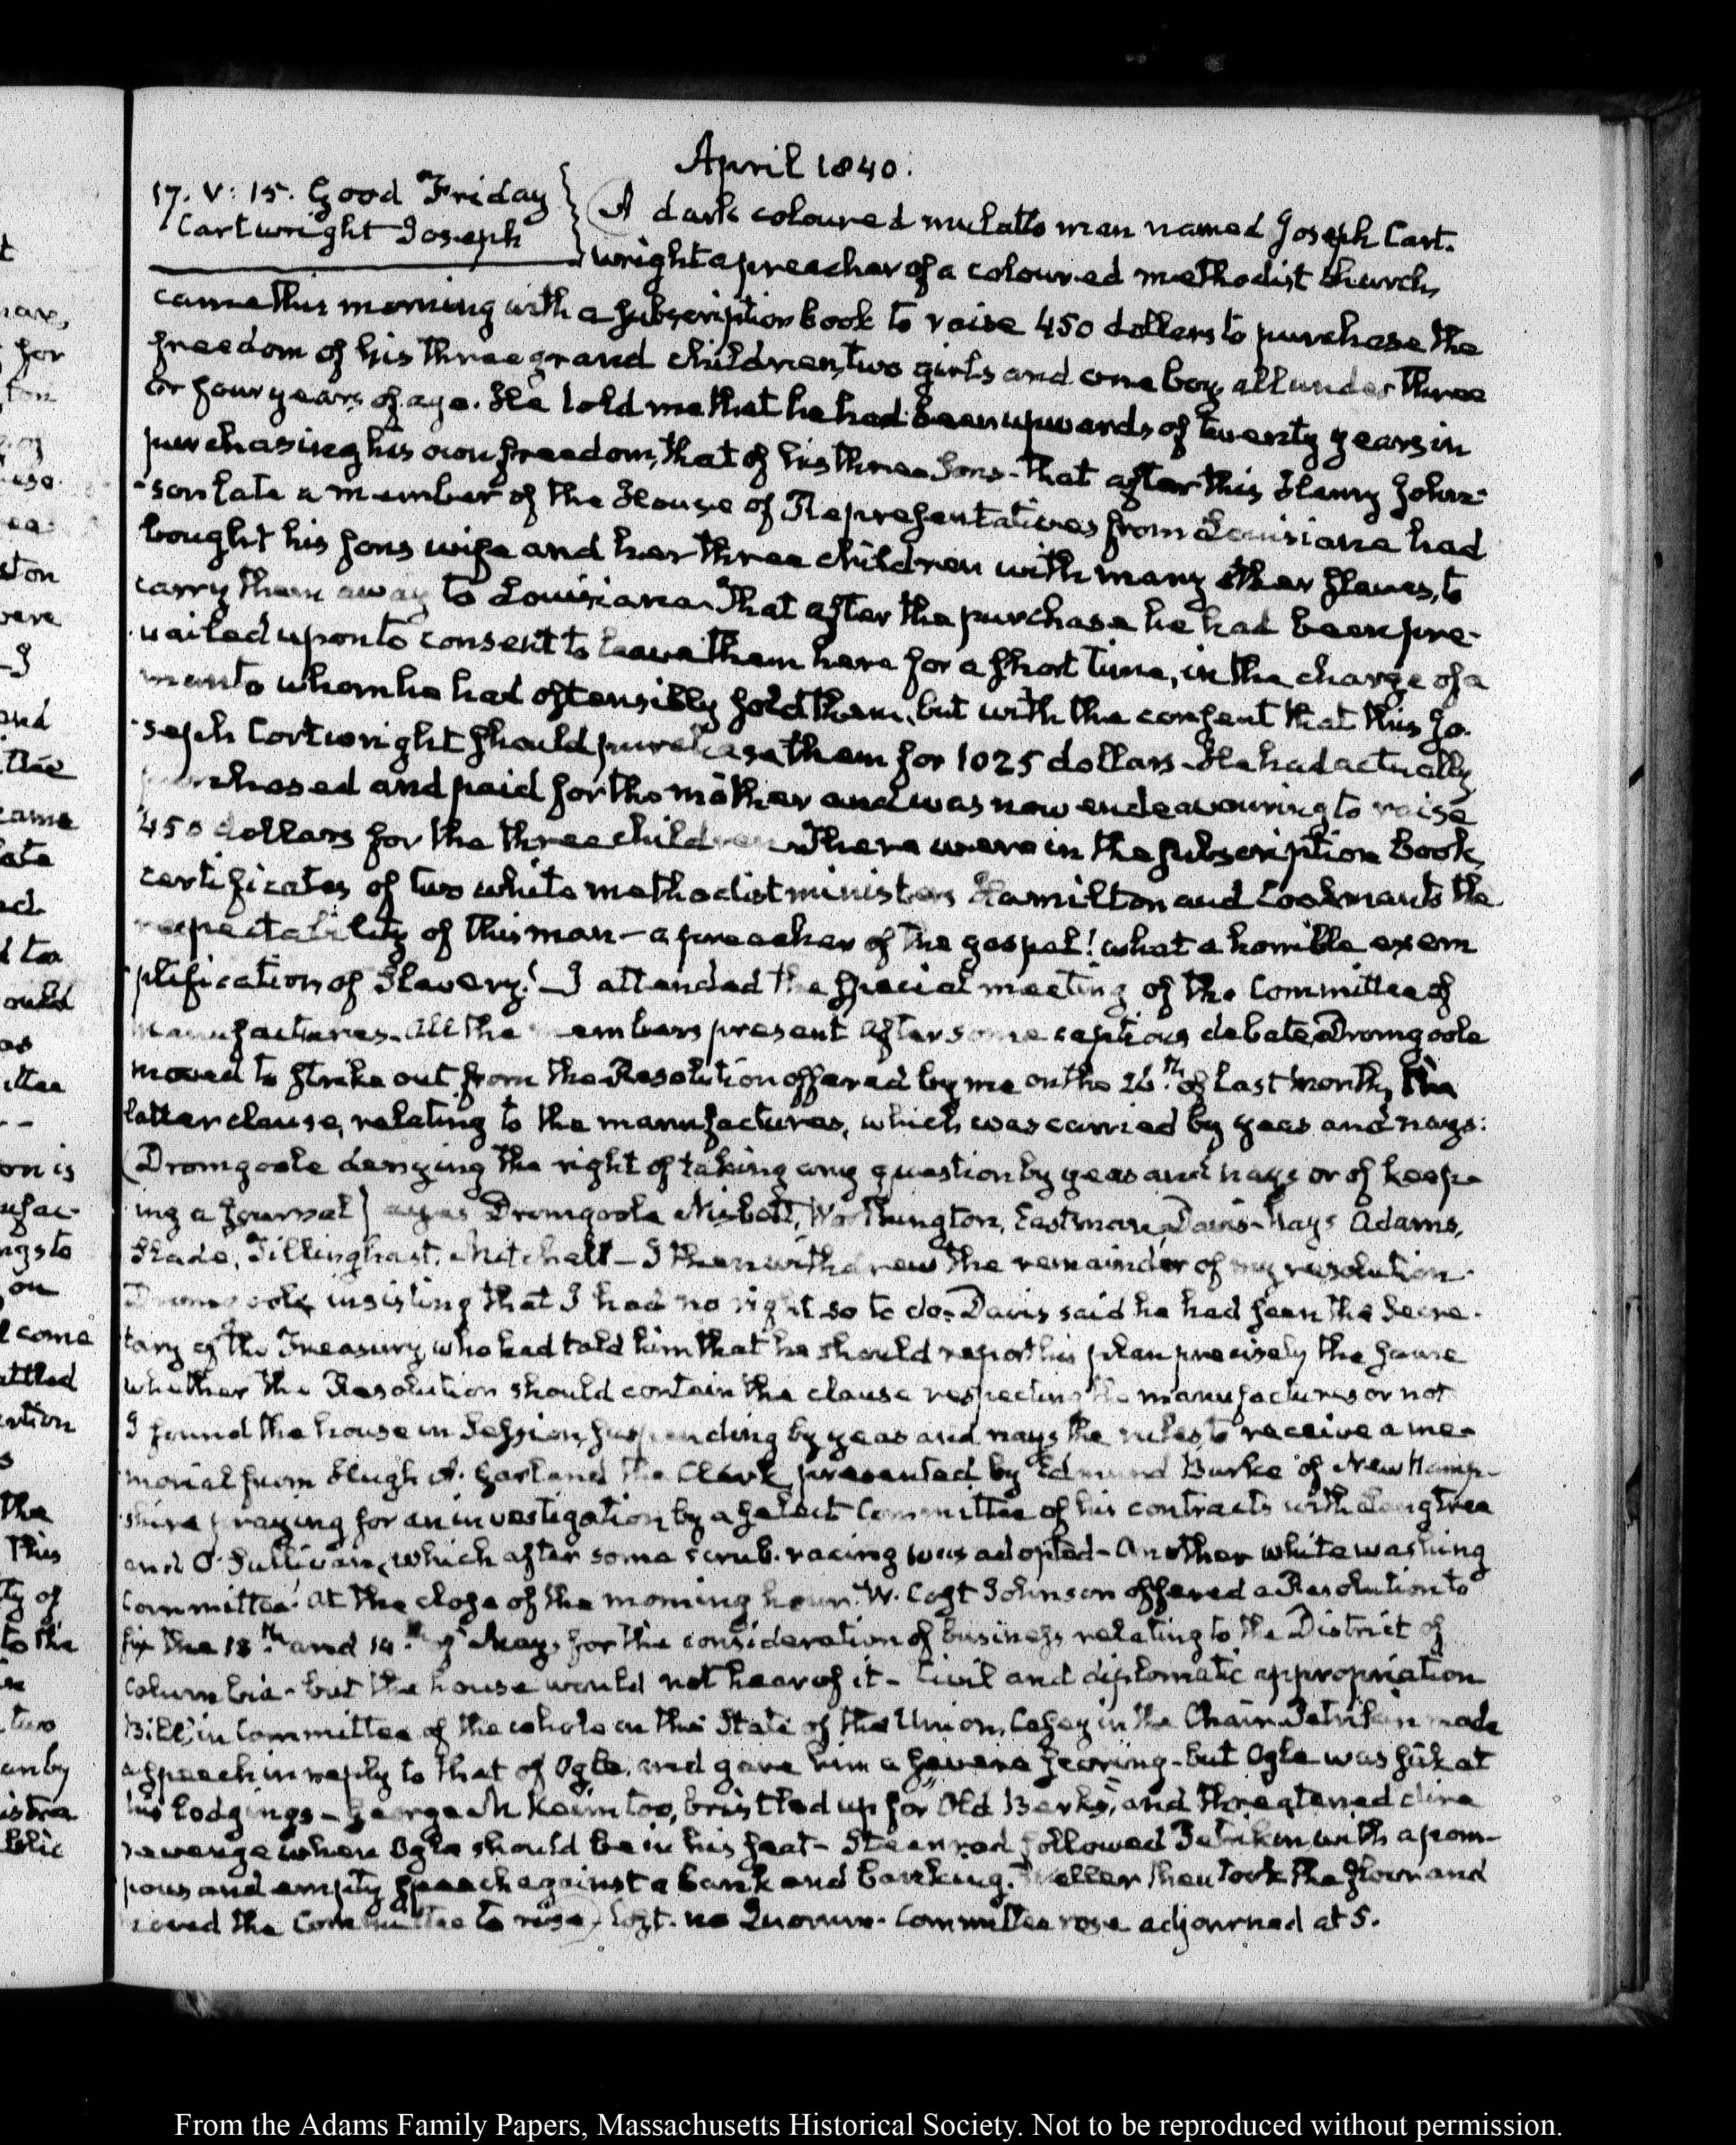 April 1840.
17. V: 15. Good Friday
Cartwright Joseph
A dark coloured mulatto man named Joseph Cart-
wright a preacher of a coloured methodist church,
came this morning with a subscription book to raise 450 dollars to purchase the
freedom of his three grand children, two girls and one boy, all under three
or four years of age. He told me that he had been upwards of twenty years in
purchasing his own freedom, that of his three Sons - that after this Henry John-
-son late a member of the House of Representatives from Louisiana had
bought his sons wife and her three children with many other slaves, to
carry them away to Louisiana. That after the purchase he had been pre-
-vailed upon to consent to leave them here for a short time, in the charge of a
man to whom he had ostensibly sold them, but with the consent that this Jo-
-seph Cartwright should purchase them for 1025 dollars - He had actually
purchased and paid for the mother and was now endeavouring to raise
450 dollars for the three children - There were in the subscription book,
certificates of two white methodist ministers Hamilton and Cookman to the
respectability of this man - a preacher of the gospel! what a horrible exem
plification of Slavery! - I attended the special meeting of the Committee of
Manufactures. All the members present After some captious debate, Dromgoole
moved to strike out from the Resolution offered by me on the 26th. of last month, the
latter clause, relating to the manufactures, which was carried by yeas and nays:
(Dromgoole denying the right of taking any question by yeas and nays or of keep-
ing a journal) ayes Dromgoole Nisbett, Worthington, Eastman, Davis - Nays Adams,
Slade, Tillinghast, Mitchell - I then withdrew the remainder of my resolution -
Dromgoole insisting that I had no right so to do. Davis said he had seen the Secre-
tary of the Treasury, who had told him that he should report his plan precisely the same
whether the Resolution should contain the clause respecting the manufactures or not
I found the house in Session, suspending by yeas and nays the rules to receive a me-
morial from Hugh A. Garland the Clerk, presented by Edmund Burke of New Hamp-
shire praying for an investigation by a select Committee of his contracts with Langtree
and O'Sullivan, which after some scrub-racing was adopted - Another whitewashing
Committee. At the close of the morning hour. W. Cost Johnson offered a Resolution to
fix the 13th. and 14th. of May, for the consideration of business relating to the District of
Columbia - but the house would not hear of it - Civil and diplomatic appropriation
Bill, in Committee of the whole on the State of the Union, Casey in the Chair. Petrikin made
a speech in reply to that of Ogle, and gave him a severe scoring - but Ogle was sick at
his lodgings - George M Keim too, bristled up for "Old Berks", and threatened dire
revenge when Ogle should be in his seat - Steenrod followed Petrikin with a pom-
pous and empty speech against a bank and banking. Weller then took the floor and
moved the Committee to rise) lost. no Quorum. Committee rose adjourned at 5.
From the Adams Family Papers, Massachusetts Historical Society. Not to be reproduced without permission.